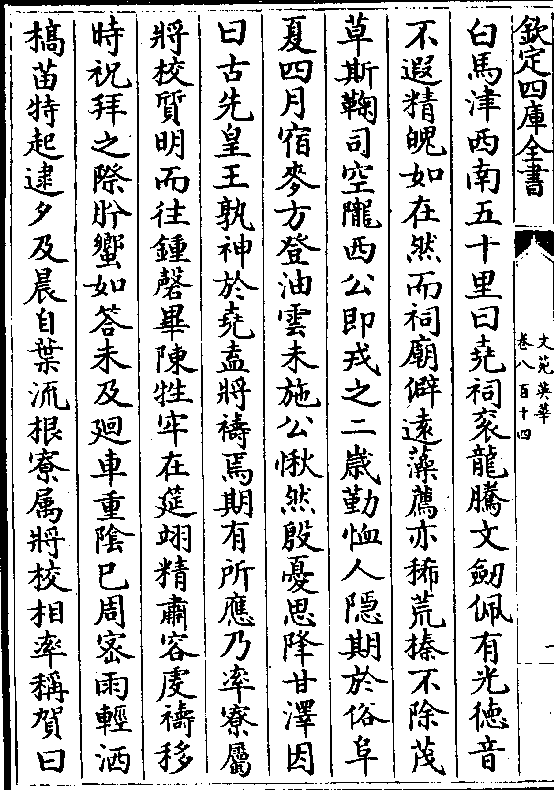 欽定四庫全書
文苑英華
卷八百十四
白馬津西南五十里曰堯祠衮龍騰文劒佩有光德音
不遐精魄如在然而祠廟僻遠藻薦亦稀荒榛不除茂
草斯鞠司空隴西公即戎之二嵗勤恤人隱期於俗阜
夏四月宿麥方登油雲未施公愀然殷憂思降甘澤因
曰古先皇王孰神於堯盍將禱焉期有所應乃率寮屬
將校質明而往鍾磬畢陳牲牢在筵翊精肅容虔禱移
時祝拜之際肹蠁如答未及廻車重隂已周宻雨輕洒
槁苗特起逮夕及晨自葉流根寮属將校相率稱賀曰